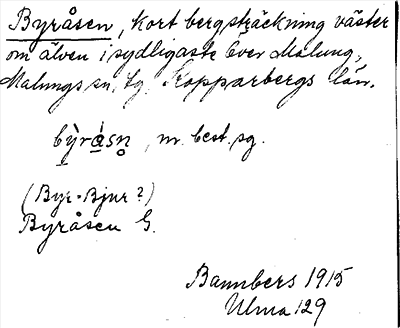 Byråsen, kort bergsträckning väster
om älven i sydligaste Över Malung,
Malungs sn, fg, Kopparbergs län.
by̆rásn̥, m. best. sg.
(Byr = Bjur?)
Byråsen G.
Bannbers 1915
Ulma 129